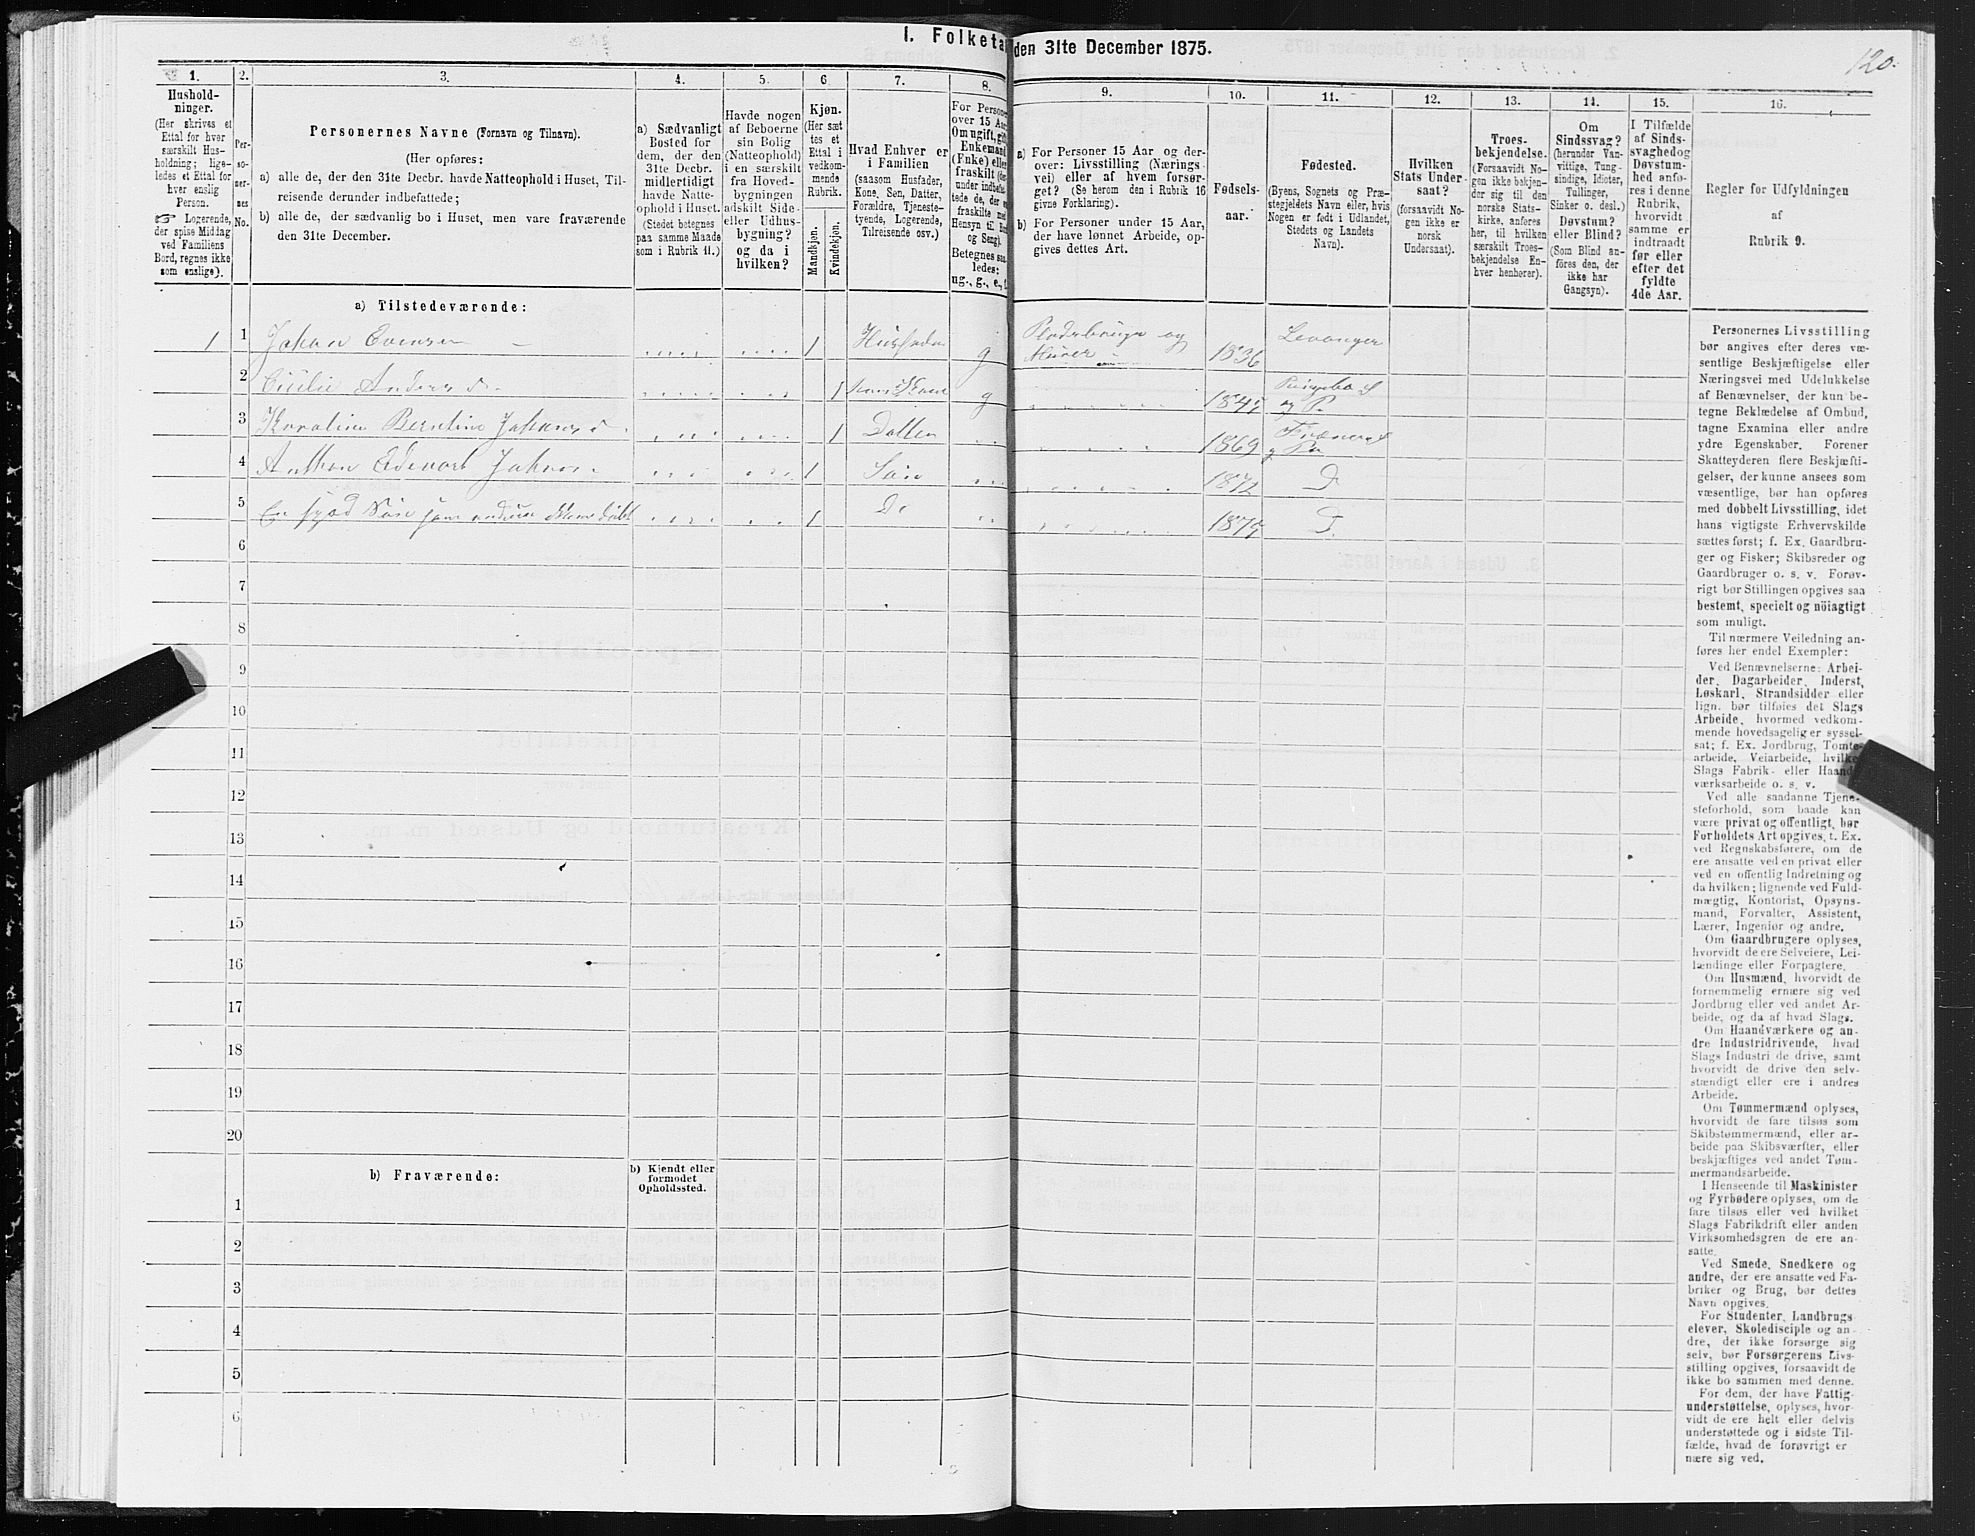 I. Folketa
den 31te December 1875.
120.
1.
Hushold-
ninger.
(Her skrives et
Ettal for hver
særskilt Hus-
holdning; lige-
ledes et Ettal for
hver enslig
Person.
☞ Logerende,
der spise Middag
ved Familiens
Bord, regnes ikke
som enslige).
2.
Per-
so-
ner-
nes
No.
3.
Personernes Navne (Fornavn og Tilnavn).
(Her opføres:
a) alle de, der den 31te Decbr. havde Natteophold i Huset, Til-
reisende derunder indbefattede;
b) alle de, der sædvanlig bo i Huset, men vare fraværende
den 31te December.
4.
a) Sædvanligt
Bosted for
dem, der den
31te Decbr.
midlertidigt
havde Natte-
ophold i Huset.
(Stedet betegnes
paa samme Maade
som i Rubrik 11.)
5.
Havde nogen
af Beboerne
sin Bolig
(Natteophold)
i en særskilt
fra Hoved-
bygningen
adskilt Side-
eller Udhus-
bygning?
og da i
hvilken?
6.
Kjøn.
(Her sæt
tes et
Ettal i
vedkom-
mende
Rubrik.
Mandkjøn.
Kvindekjøn.
7.
Hvad Enhver er
i Familien
(saasom Husfader,
Kone, Søn, Datter,
Forældre, Tjeneste-
tyende, Logerende,
Tilreisende osv.)
8.
For Persone
over 15 Aar
Om ugift, gift
Enkemand
(Enke) eller
fraskilt (der-
under indbefat-
tede de, der er
fraskilte med
Hensyn til Bo
og Seng).
Betegnes saa-
ledes:
ug., g., e., f.
9.
a) For Personer 15 Aar og der-
over: Livsstilling (Nærings-
vei) eller af hvem forsør-
get? (Se herom den i Rubrik 16
givne Forklaring).
b) For Personer under 15 Aar,
der have lønnet Arbeide, op-
gives dettes Art.
10.
Fødsels-
aar.
11.
Fødested.
(Byens, Sognets og Præ-
stegjeldets Navn eller, hvis
Nogen er født i Udlandet,
Stedets og Landets
Navn).
12.
Hvilken
Stats Under-
saat?
(forsaavidt No-
gen ikke er
norsk
Undersaat).
13.
Troes-
bekjendelse.
(Forsaavidt No-
gen ikke bekjen-
der sig til den
norske Stats-
kirke, anføres
her, til hvilken
særskilt Troes-
bekjendelse En-
hver henhører).
14.
Om
Sindssvag?
(herunder Van-
vittige, Tung-
sindige, Idioter,
Tullinger,
Sinker o. desl.)
Døvstum?
eller Blind?
(Som Blind an-
føres den, der
ikke har
Gangsyn).
15.
I Tilfælde
af Sinds-
svaghed og
Døvstum-
hed anfø-
res i denne
Rubrik,
hvorvidt
samme er
indtraadt
før eller
efter det
fyldte
4de Aar.
16.
Regler for Udfyldningen
af
Rubrik 9.
a) Tilstedeværende:
1 1 Johan Evensen 1 Husfader g og Murer 1836 Levanger
2 Anders d. 1 g og P.
3 Karoline Berntine Johans d. 1 Datter 1869
4 Anthon Johans. 1 Søn 1872 D
5 En 1 Do 1875 D.
6
7
8
9
10
11
12
13
14
15
16
17
18
19
20
b) Fraværende:
b) Kjendt eller
formodet
Opholdssted.
1
2
3
4
5
6
Personernes Livsstilling
bør angives efter deres væ-
sentlige Beskjæftigelse eller
Næringsvei med Udelukkelse
af Benævnelser, der kun be-
tegne Beklædelse af Ombud,
tagne Examina eller andre
ydre Egenskaber. Forener
Skatteyderen flere Beskjæfti-
gelser, der kunne ansees som
væsentlige, bør han opføres
med dobbelt Livsstilling, idet
hans vigtigste Erhvervskilde
sættes først; f. Ex. Gaardbru-
ger og Fisker; Skibsreder og
Gaardbruger o. s. v. Forøv-
rigt bør Stillingen opgives saa
bestemt, specielt og nöiagtigt
som muligt.
Til nærmere Veiledning an-
føres her endel Exempler:
Ved Benævnelserne: Arbei-
der, Dagarbeider, Inderst,
Løskarl, Strandsidder eller
lign. bør tilføies det Slags
Arbeide, hvormed vedkom-
mende hovedsagelig er syssel-
sat; f. Ex. Jordbrug, Tomte-
arbeide, Veiarbeide, hvilke
Slags Fabrik- eller Haand-
værksarbeide o. s. v.
Ved alle saadanne Tjene-
steforhold, som baade kan
være privat og offentligt, bør
Forholdets Art opgives, t. Ex.
ved Regnskabsførere, om de
ere ansatte ved en privat eller
ved en offentlig Indretning og
da hvilken; lignende ved Fuld-
mægtig, Kontorist, Opsyns-
mand, Forvalter, Assistent,
Lærer, Ingeniør og andre.
Om Gaardbrugere oplyses,
hvorvidt de ere Selveiere, Lei-
lændinge eller Forpagtere.
Om Husmænd, hvorvidt de
fornemmelig ernære sig ved
Jordbrug eller ved andet Ar-
beide, og da af hvad Slags.
Om Haandværkere og an-
dre Industridrivende, hvad
Slags Industri de drive, samt
hvorvidt de drive den selv-
stændigt eller ere i andres
Arbeide.
Om Tømmermænd oplyses,
hvorvidt de fare tilsøs som
Skibstømmermænd, eller ar-
beide paa Skibsværfter, eller
beskjæftiges ved andet Tøm-
mermandsarbeide.
I Henseende til Maskinister
og Fyrbødere oplyses, om de
fare tilsøs eller ved hvilket
Slags Fabrikdrift eller anden
Virksomhedsgren de ere an-
satte.
Ved Smede, Snedkere og
andre, der ere ansatte ved Fa-
briker og Brug, bør dettes
Navn opgives.
For Studenter, Landbrugs
elever, Skoledisciple og an-
dre, der ikke forsørge sig
selv, bør Forsørgerens Livs-
stilling opgives, forsaavidt de
ikke bo sammen med denne.
For dem, der have Fattig-
understøttelse, oplyses, hvor-
vidt de ere helt eller delvis
understøttede og i sidste Til-
fælde, hvad de forøvrigt er
nære sig ved.